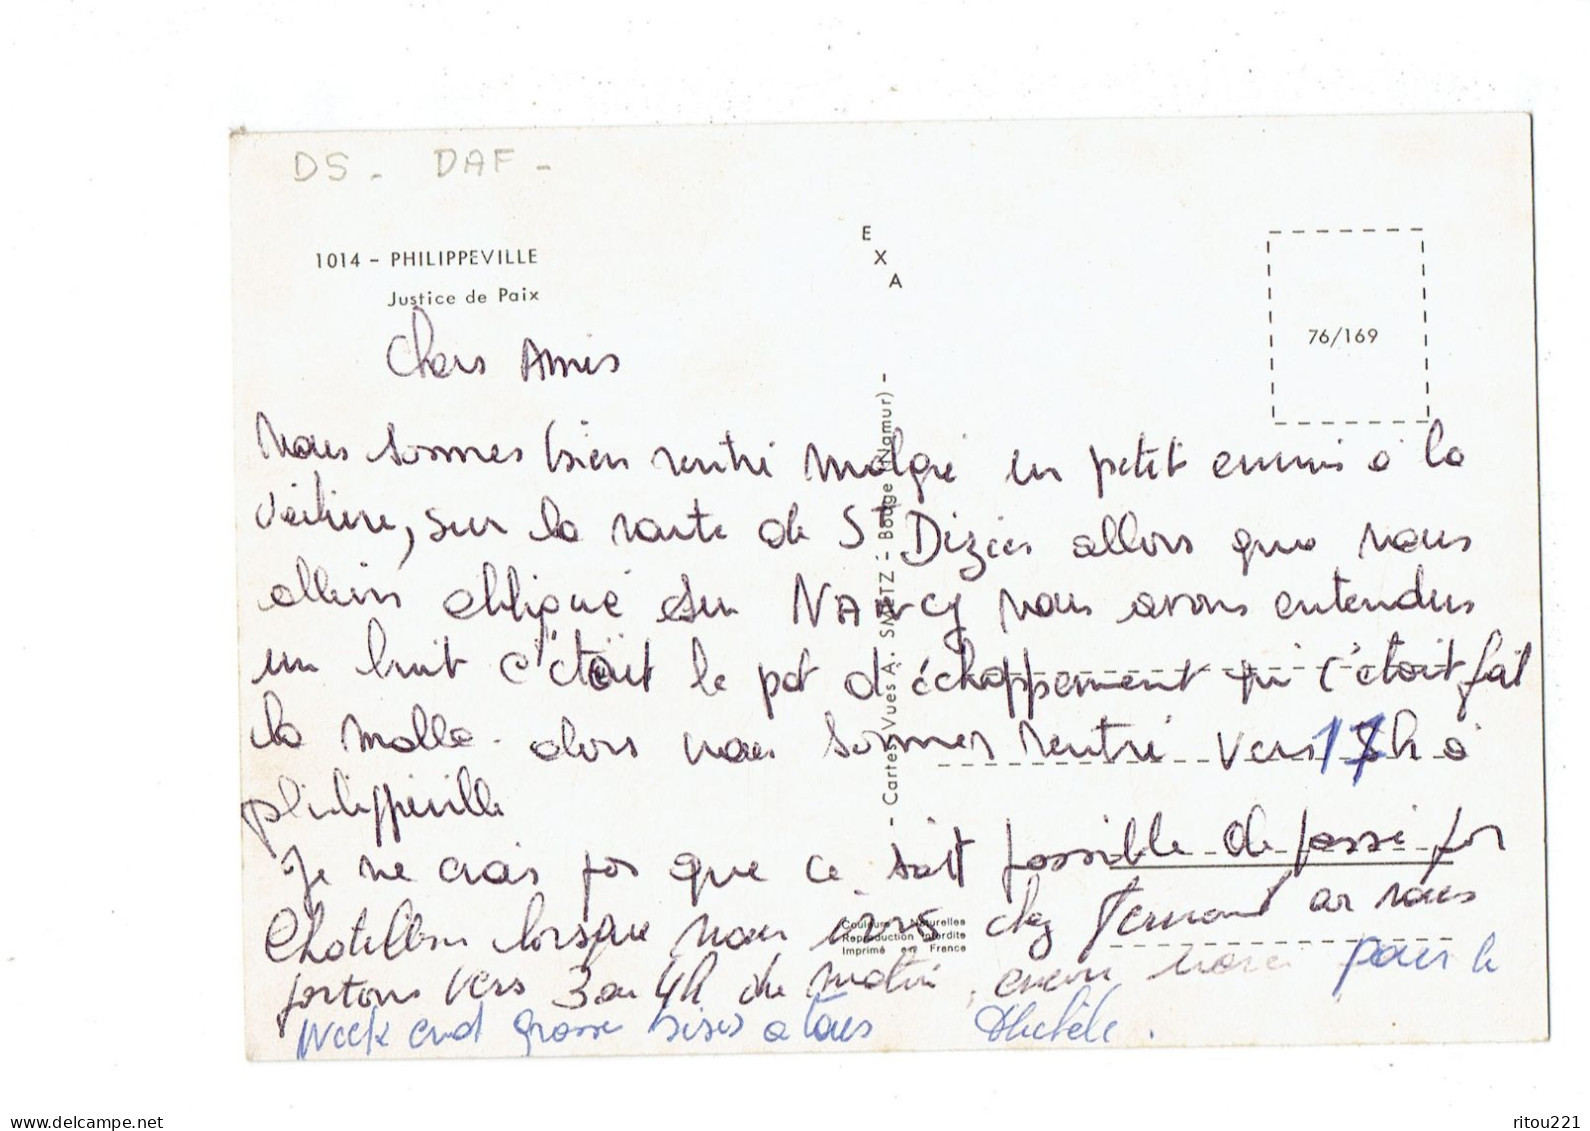 DS - DAF -
1014 - PHILIPPEVILLE
Justice de Paix
E
X
A
76/169
- Cartes Vues A. SMETZ - Bouge (Namur) -
Couleurs Naturelles
Reproduction Interdite
Imprimé en France
Chers Amis
Nous sommes bien rentré malgré un petit ennuis a la
voiture, sur la route de St Dizier allors que nous
allions obliqué sur NANCY nous avons entendus
un bruit c'était le pot d'échappement qui c'était fait
la malle - alors nous sommes rentré vers 17h a
philippeville
Je ne crois pas que ce soit possible de passé par
Chatillon lorsque nous irons chez Fernand car nous
partons vers 3 ou 4h du matin, encore merci pour le
Week end grosse bises a tous Michèle.
ritou221